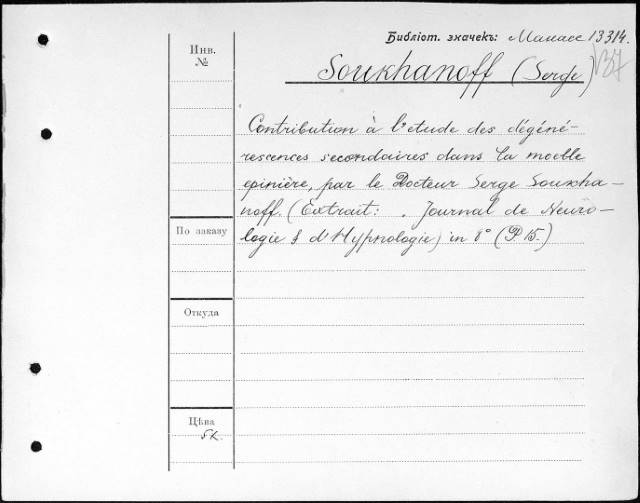 Библіот. значекъ: Манасс 13314.
137
Инв.
№
Soukhanoff (Serge)
Contribution à l'etude des dégéné-
rescences secondaires dans la moelle
epinière, par le Docteur Serge Soukha-
noff. (Extrait: . Journal de Neuro-
logie & d'Hypnologie) in 8° (P. 15.)
По заказу
Откуда
Цѣна
5к